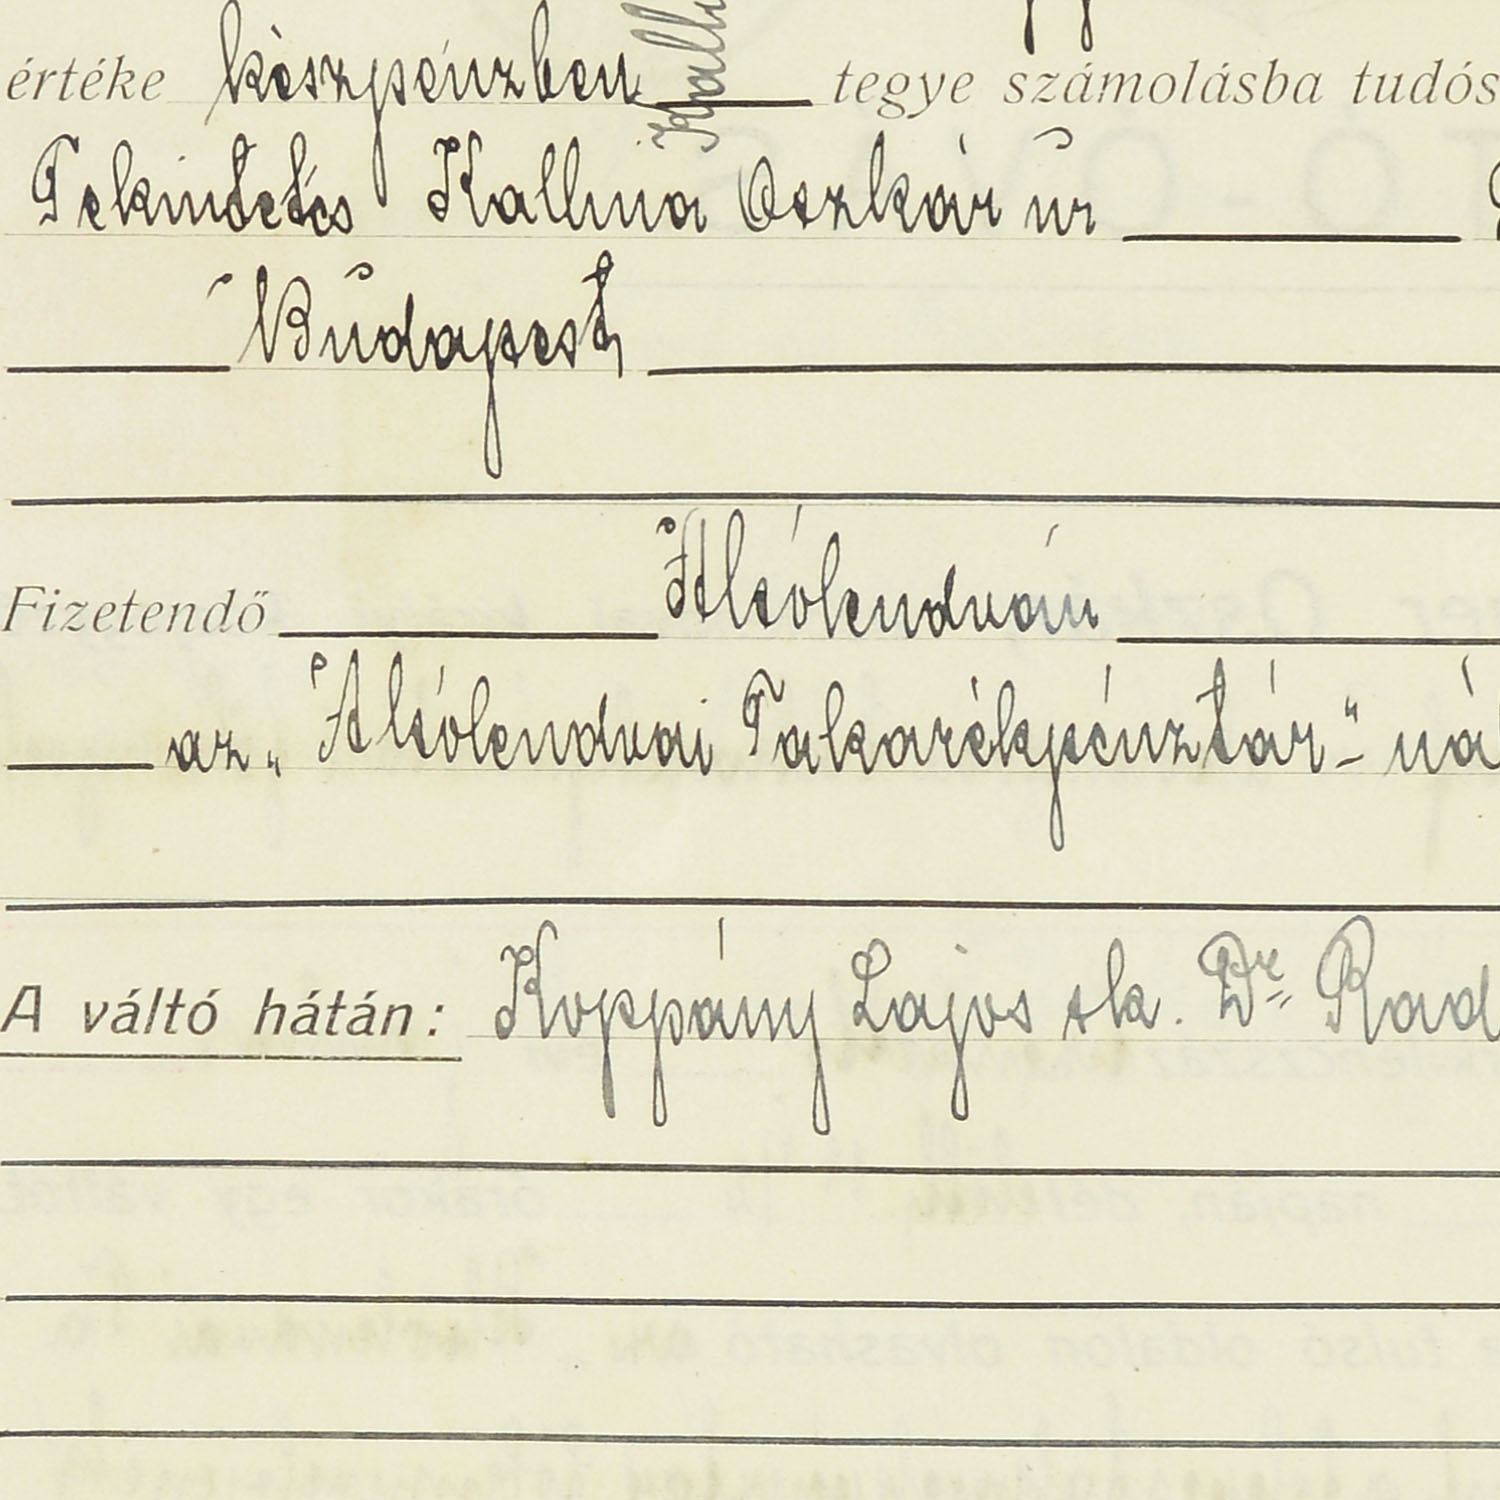 értéke készpénzben tegye számolásba tudós
Tekintetes Kallina Oszkár úr
Budapest
Fizetendő Alsólendván
az „Alsólendvai Takarékpénztár“-ná
A váltó hátán: Koppány Lajos sk. Dr. Rad